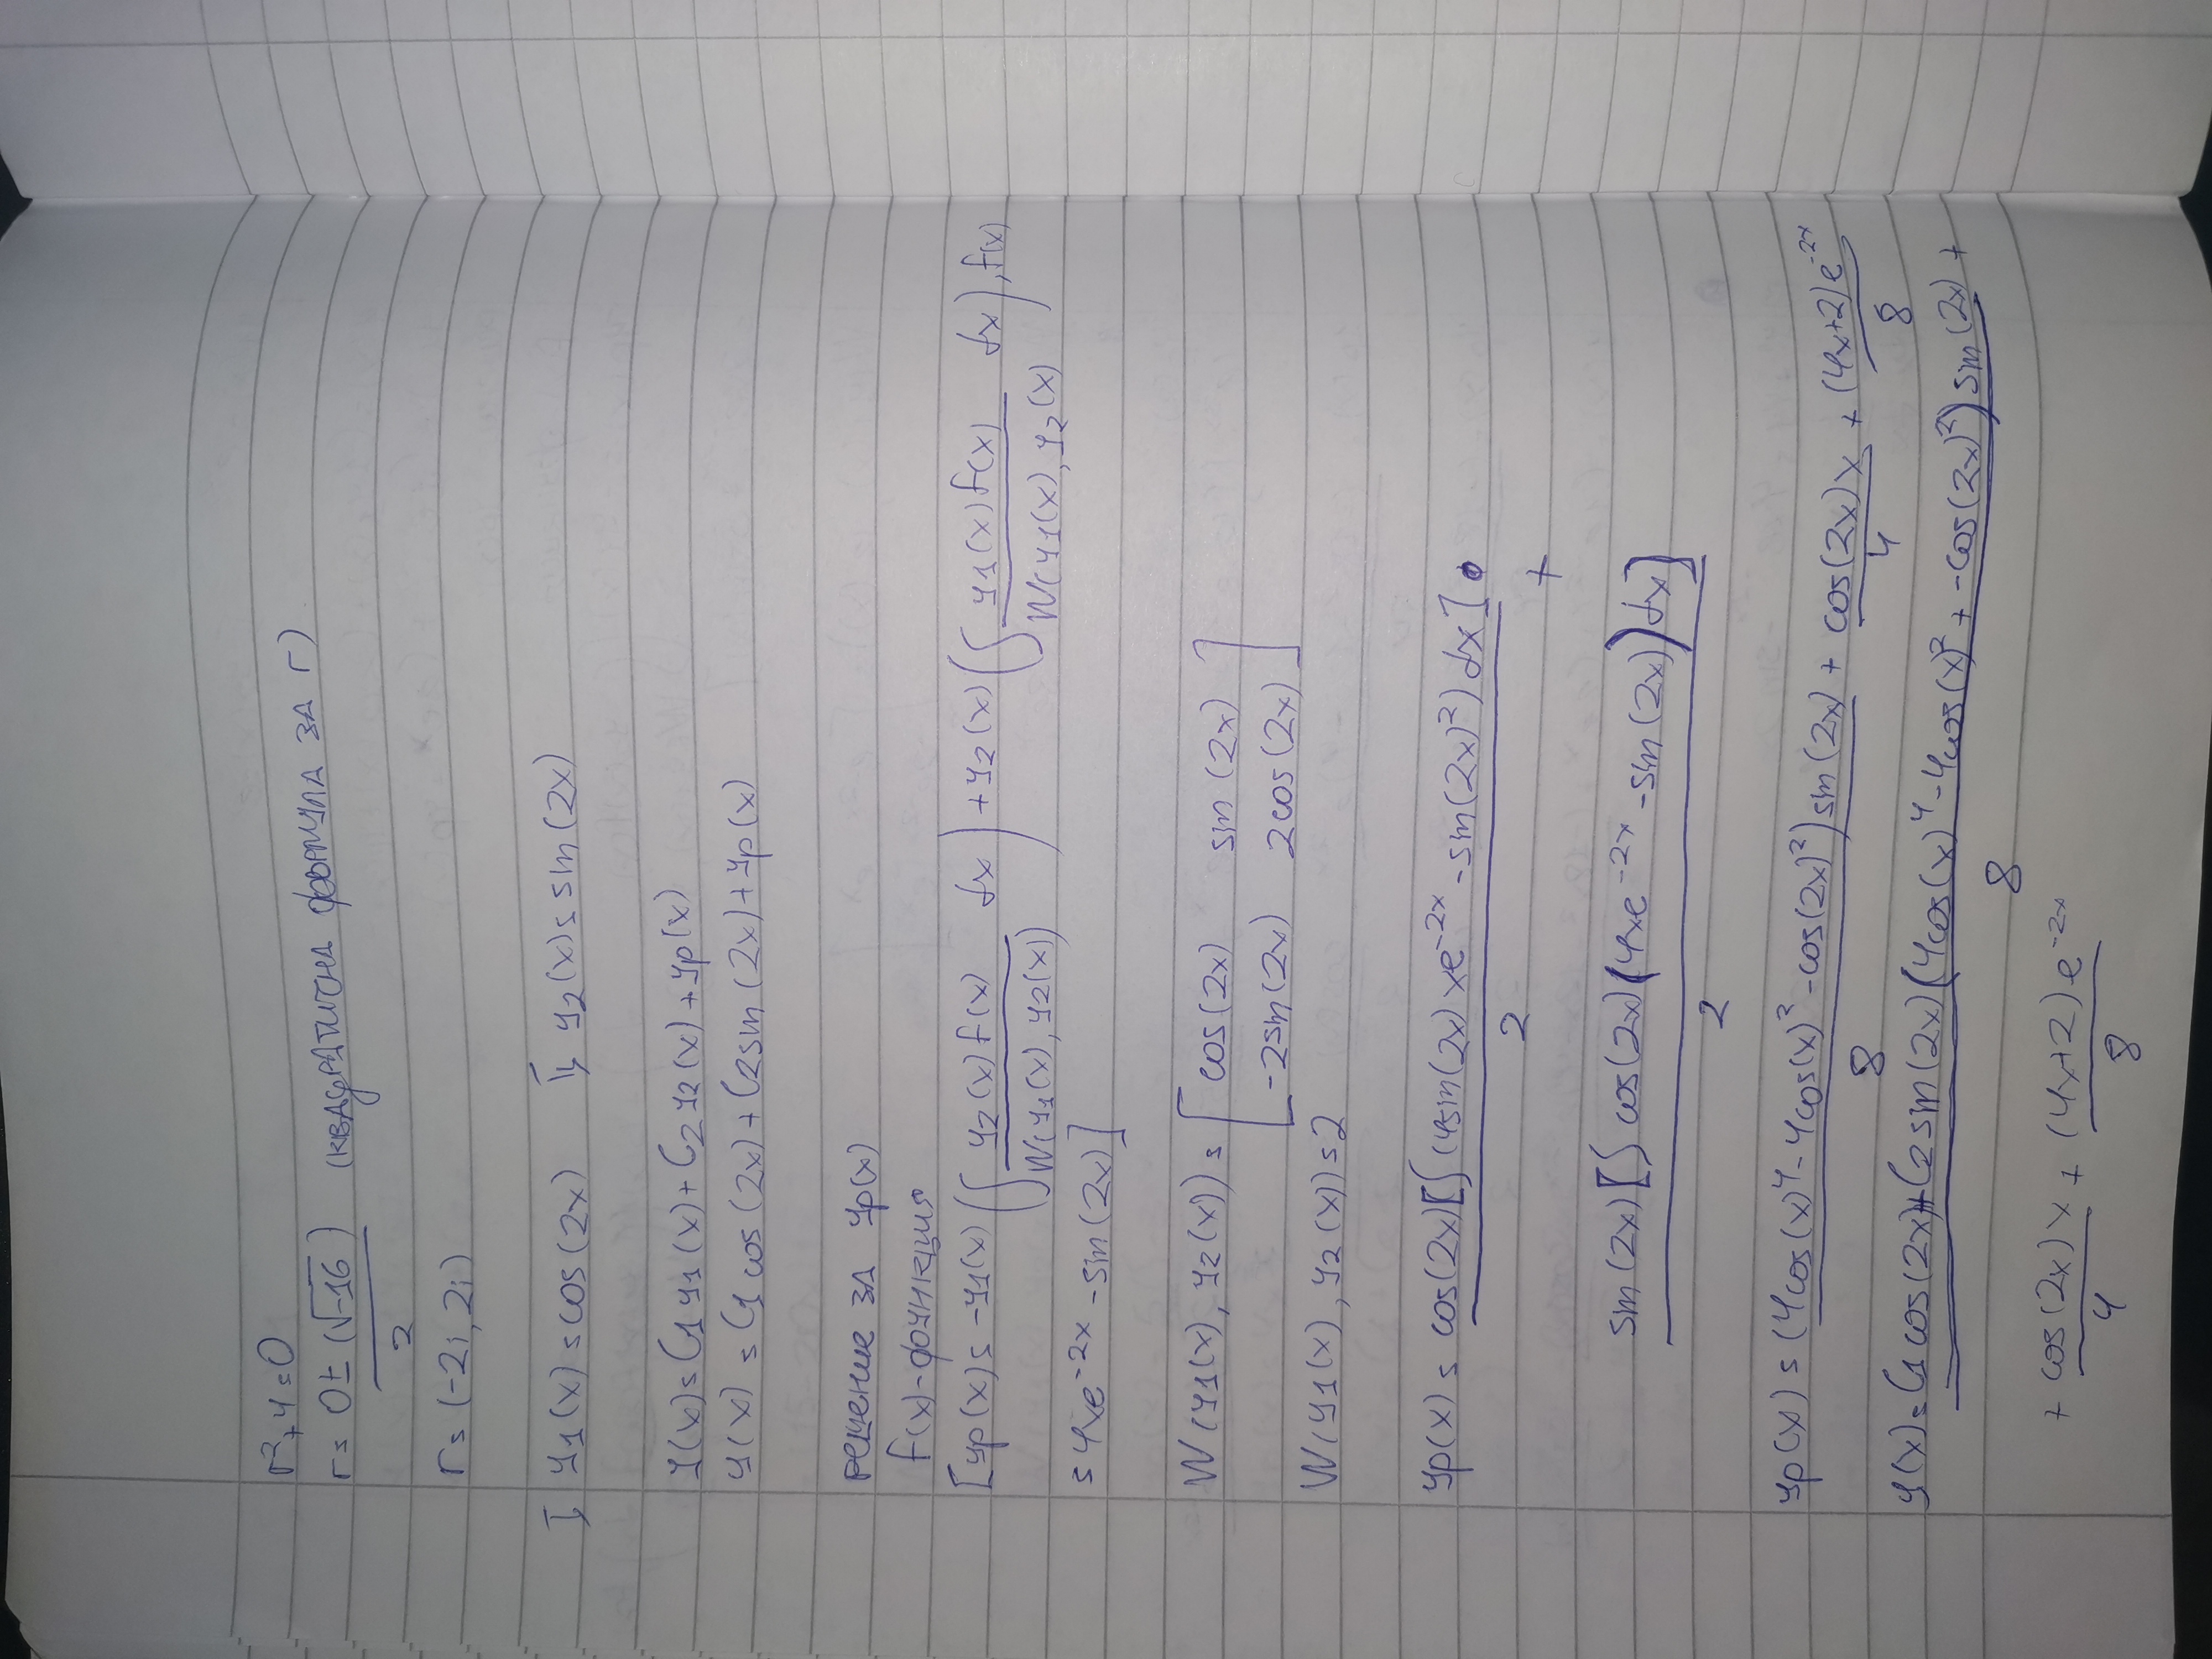 r²+4=0
r= 0±(√-16)/2 (квадратична формула за r)
r= (-2i, 2i)
I, y1(x)=cos(2x) II, y2(x)=sin(2x)
y(x)=C1 y1(x)+C2 y2(x)+yp(x)
y(x)=C1 cos(2x)+C2 sin(2x)+yp(x)
решение за yp(x)
f(x)-функция
[yp(x)= -y1(x)(∫ y2(x)f(x)/W(y1(x), y2(x)) dx)+y2(x)(∫ y1(x)f(x)/W(y1(x), y2(x) dx), f(x)
=4xe^-2x -sin(2x)]
W(y1(x), y2(x))= [cos(2x) sin(2x)
-2sin(2x) 2cos(2x)]
W(y1(x), y2(x))=2
yp(x)= cos(2x)[∫(4sin(2x)xe^-2x -sin(2x)²)dx]/2
+
sin(2x)[∫cos(2x)(4xe^-2x -sin(2x))dx]/2
yp(x)= (4cos(x)⁴-4cos(x)²-cos(2x)²)sin(2x)/8 + cos(2x)x/4 + (4x+2)e^-2x/8
y(x)=C1 cos(2x)+C2 sin(2x)(4cos(x)⁴-4cos(x)²+-cos(2x)²)sin(2x)/8 +
+ cos(2x)x/4 + (4x+2)e^-2x/8